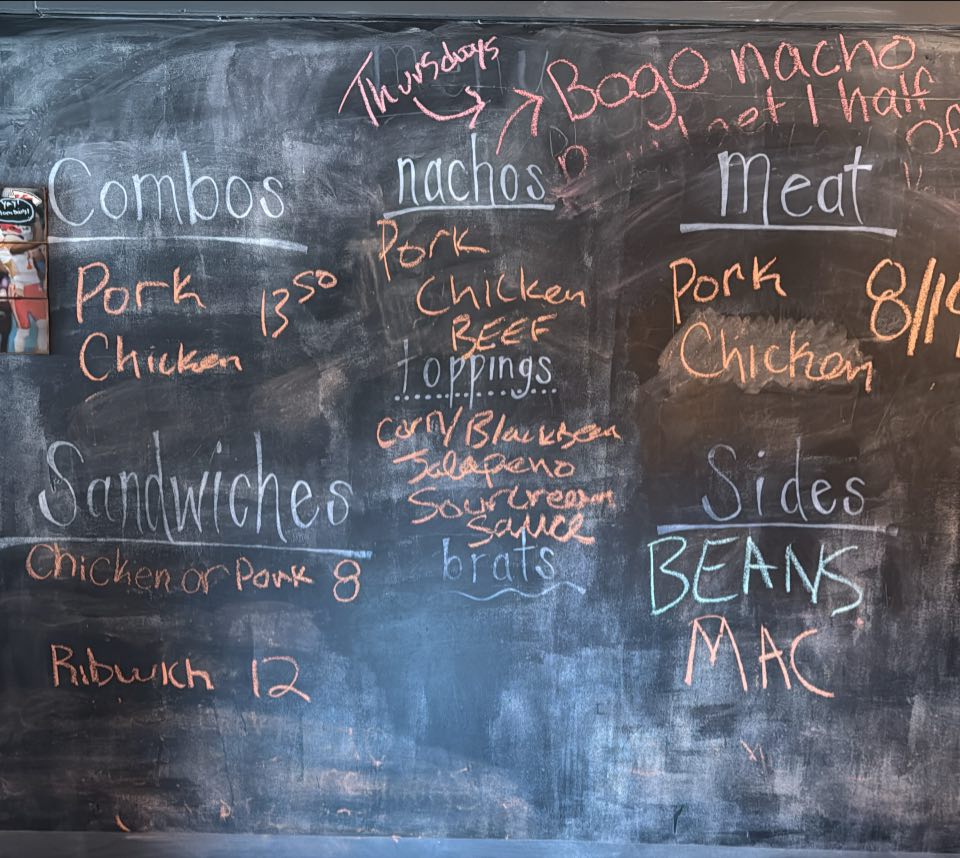 Thursdays
Bogo nacho
get 1 half
Combos
Pork 13 50
Chicken
Sandwiches
Chicken or Pork 8
Ribwich 12
nachos
Pork
Chicken
BEEF
toppings
Corn/Blackbean
Jalapeno
Sour cream
Sauce
brats
Meat
Pork
Chicken
Sides
BEANS
MAC